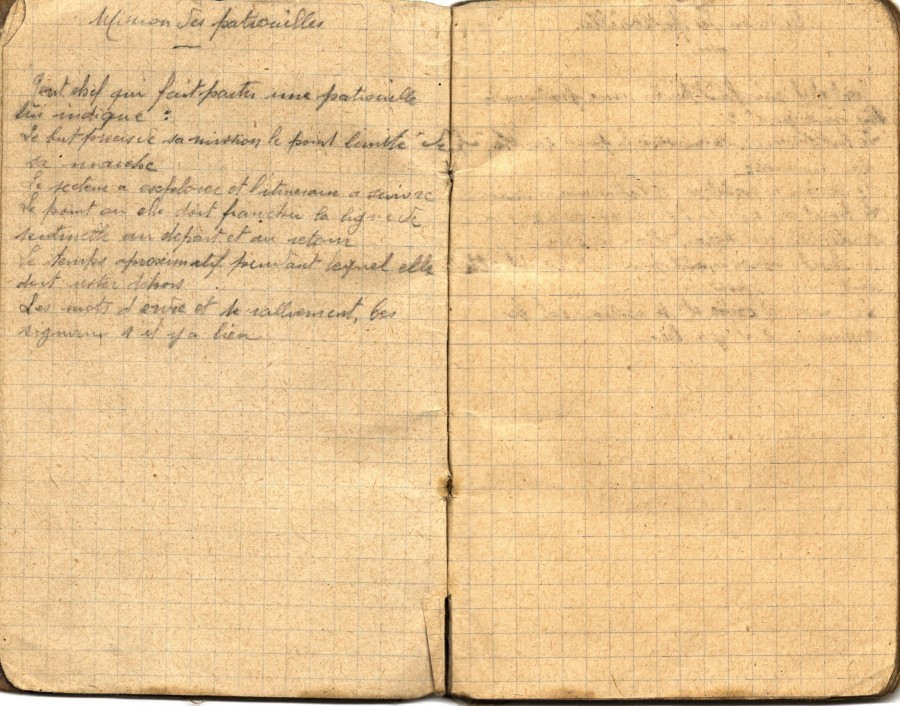 Mission des patrouilles
Tout chef qui fait partir une patrouille
lui indique :
Le but précis de sa mission le point limité de
sa marche
Le secteur a explorer et l'itineraire a suivre
Le point ou elle doit franchir la ligne de
sentinelle au depart et au retour
Le temps aproximatif pendant lequel elle
doit rester dehors
Les mots d'ordre et de ralliement, les
signaux s'il y a lieu